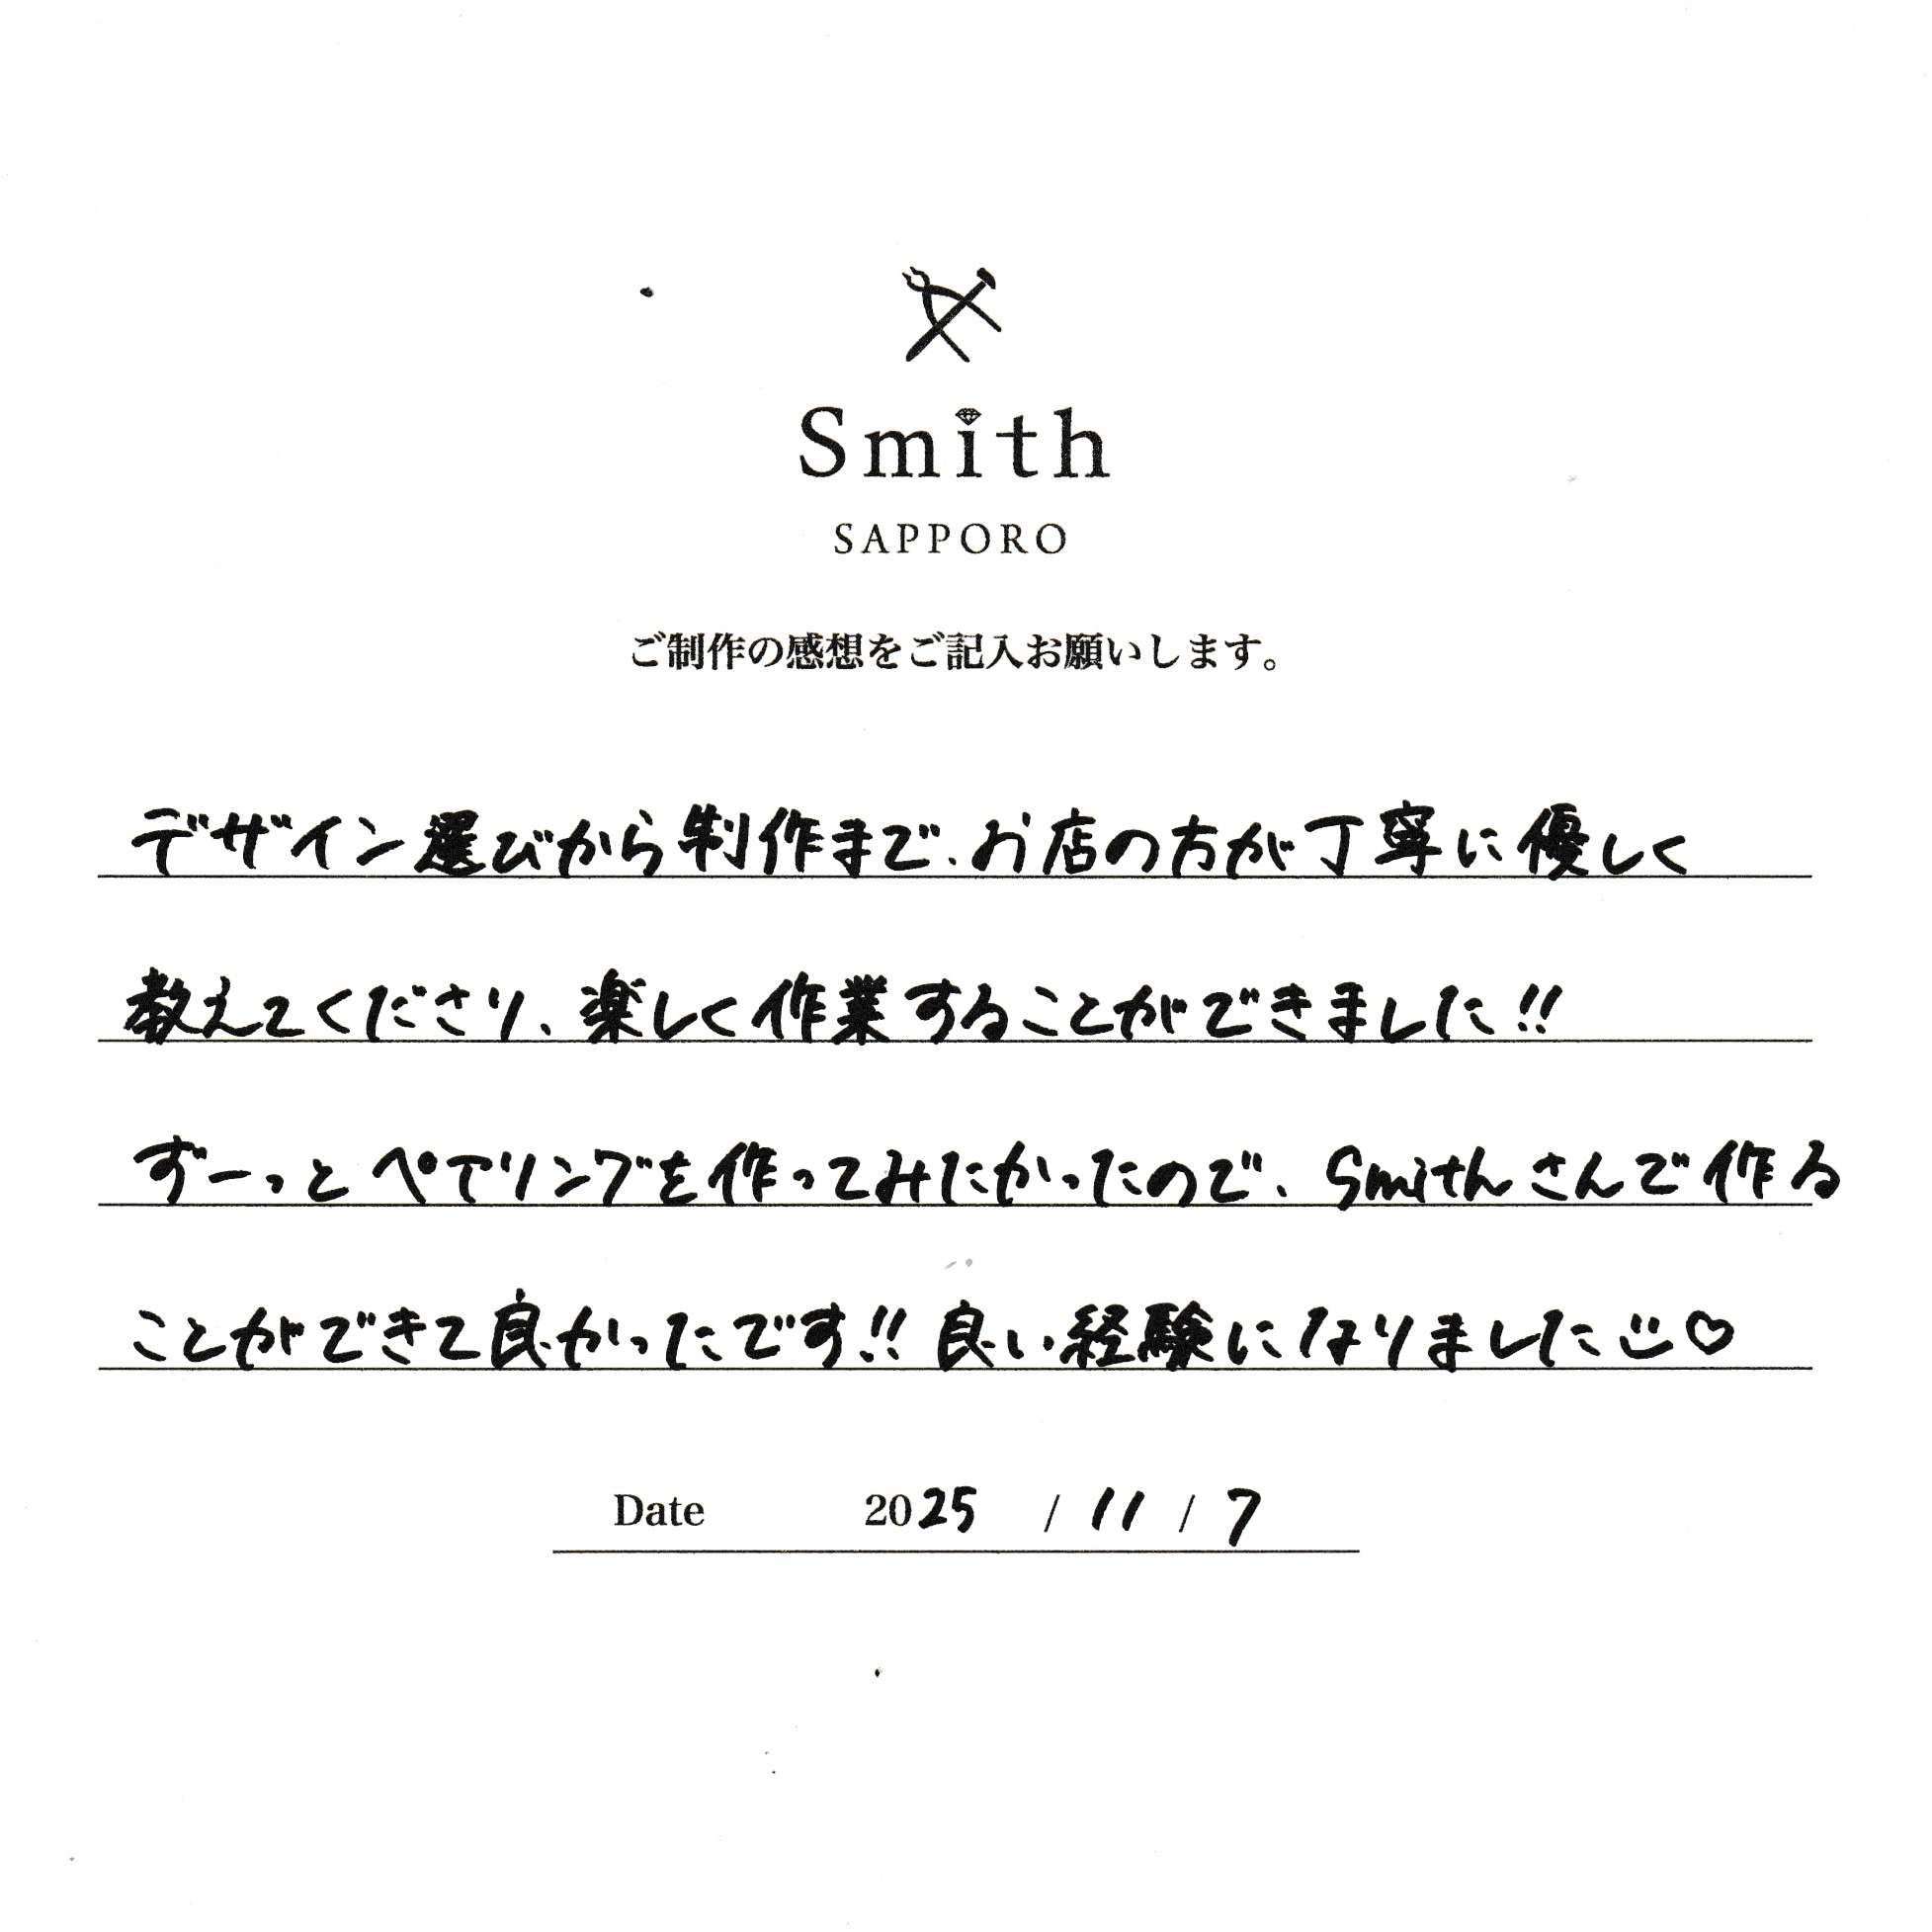 Smith
SAPPORO
ご制作の感想をご記入お願いします。
デザイン選びから制作まで、お店の方が丁寧に優しく
教えてくださり、楽しく作業することができました!!
ずーっとペアリングを作ってみたかったので、Smithさんで作る
ことができて良かったです!! 良い経験になりました☺♡
Date 2025 / 11 / 7